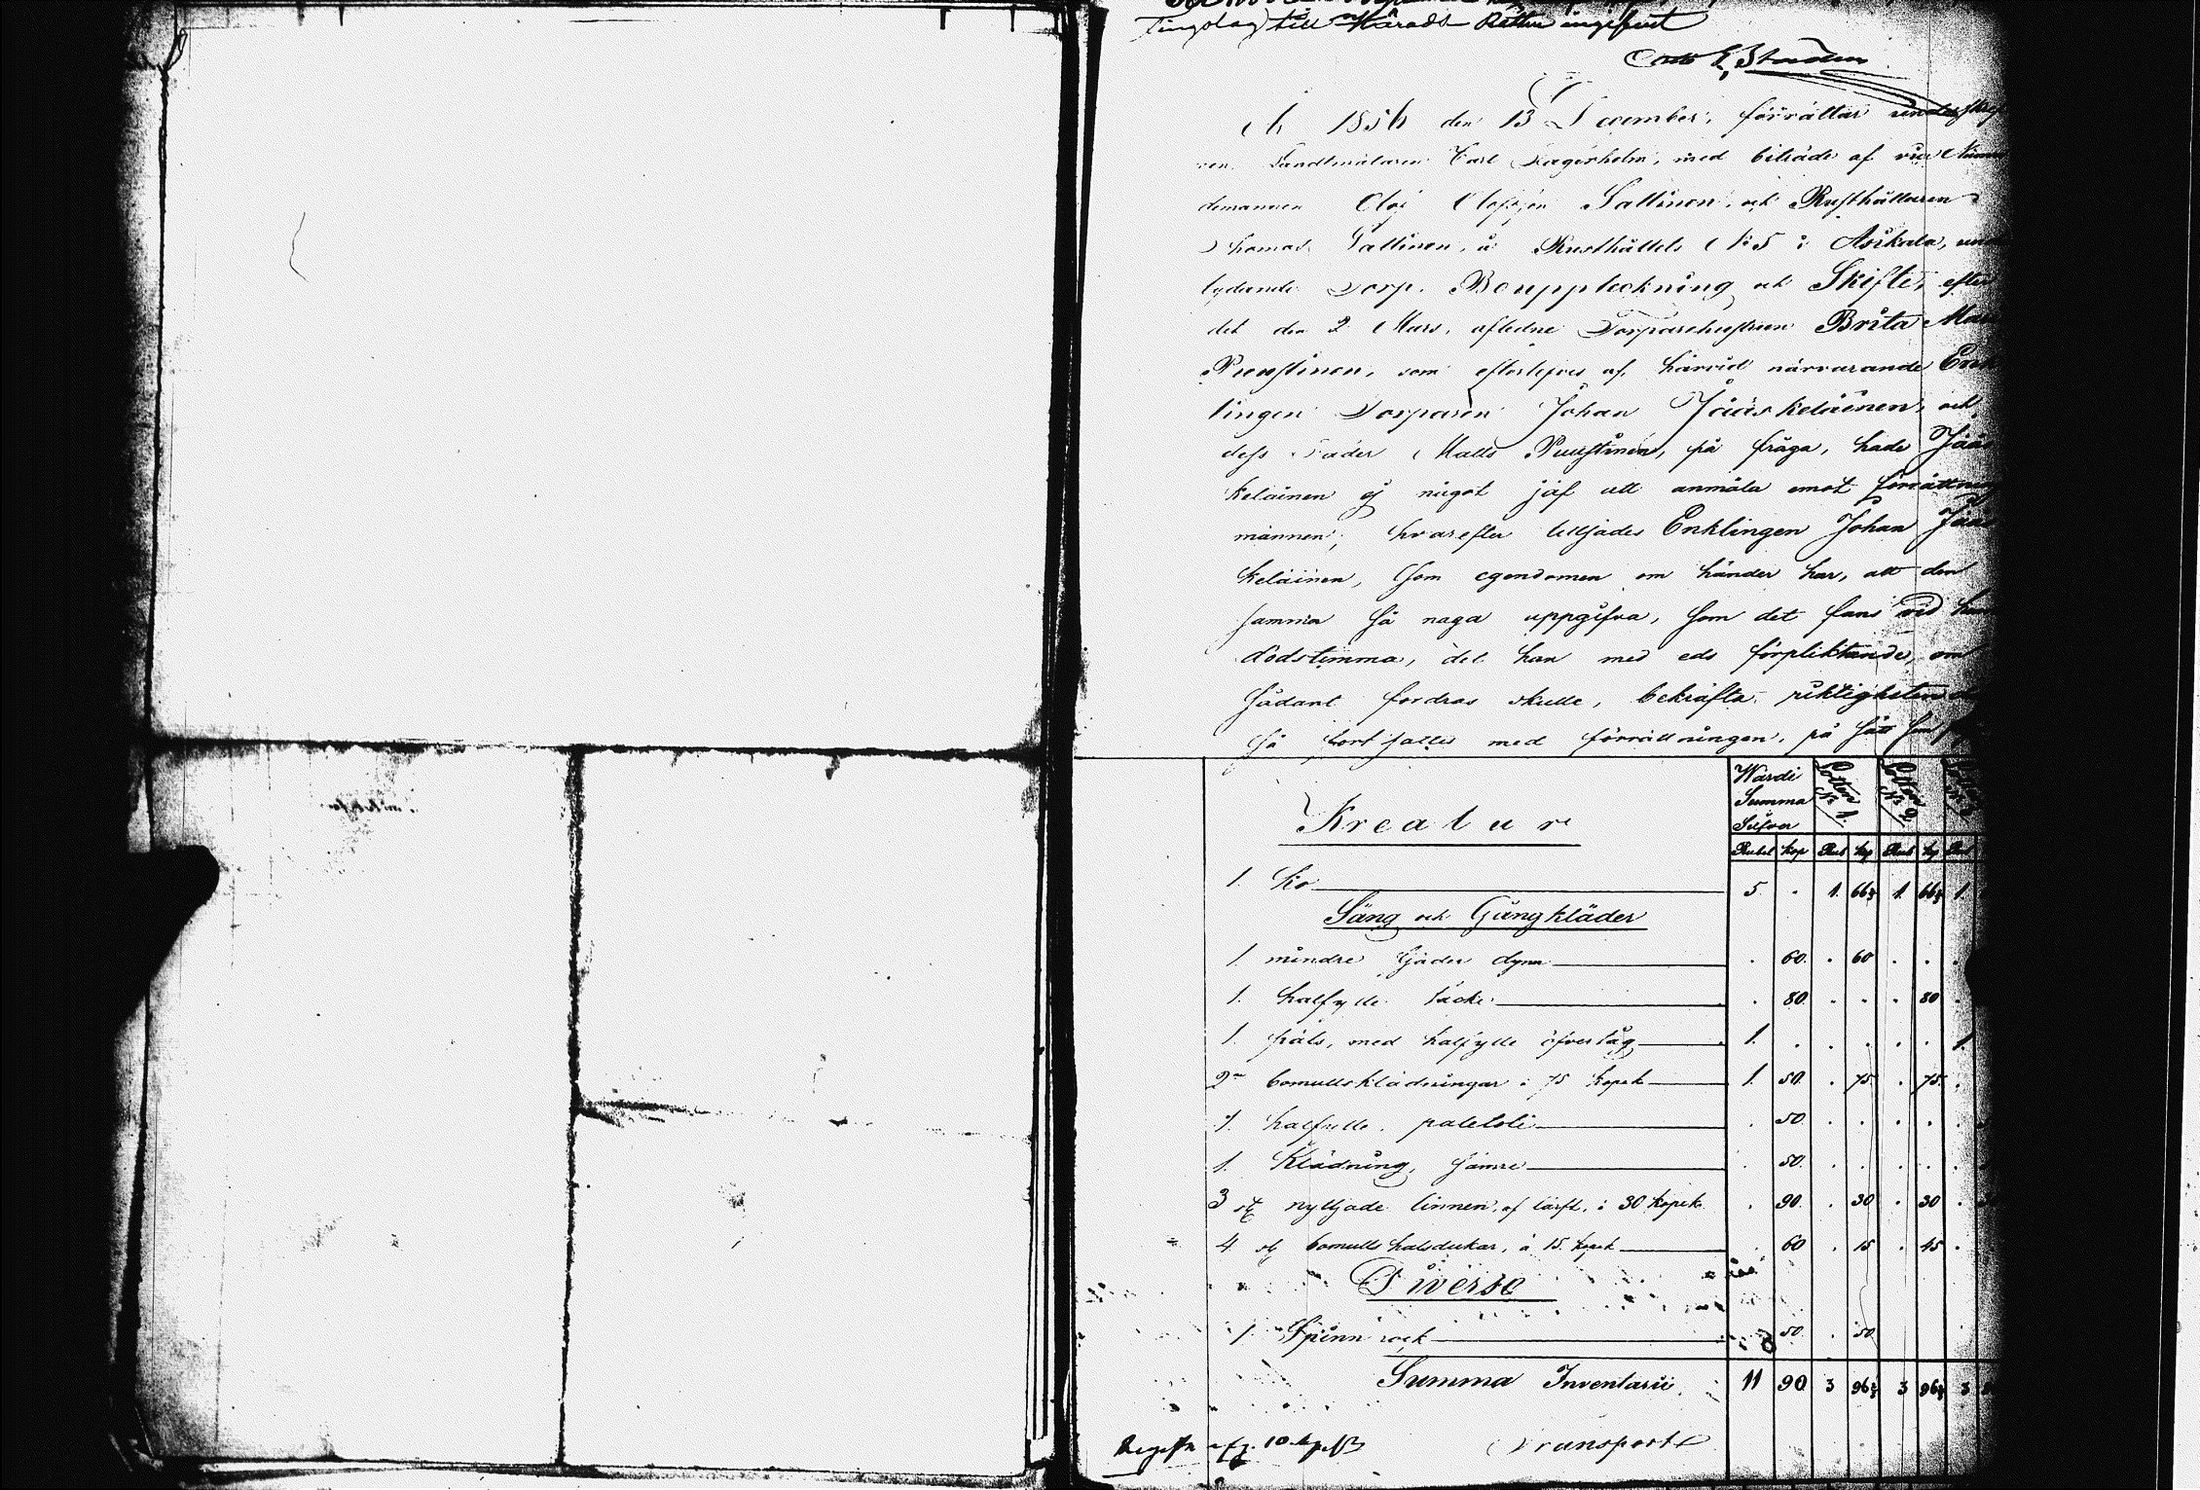 Tingslag till Härads Rätten ingifvit
År 1856 den 13 December, förrättar underskref
nen Landtmätaren Carl Lagerholm, med biträde af Näm
demannen Olof Olofsson Lattinen, och Rusthållaren
Thomas Lattinen, å Rusthållets No 5 i Asikala, und
lydande Torp, Bouppteckning och Skifte, efter
det den 2 Mars, aflidne Torparehustrun Brita Mar
Puustinen, som efterlefves af härvid närvarande Enk
lingen Torparen Johan Jääskeläinen, och
dess Fader Matts Puustinen, på fråga, hade Jääs
keläinen ej något jäf att anmäla emot förrättnings
männen, hvarefter tillsades Enklingen Johan Jääs
keläinen, som egendomen om händer har, att den
samma så noga uppgifva, som det fans vid
dödstimma, det han med eds förpliktande, om
sådant fordras skulle, bekräfta riktigheten
så fortsattes med förrättningen, på sätt som
Wärde Summa Silfver
Lotten No 1.
Lotten No 2.
Rubel kop Rub kop Rub kop Rub
Kreatur
1. Ko 5 . 1. 66⅔ 1. 66⅔ 1.
Säng och Gångkläder
1. mindre fjäder dyna . 60. . 60 . .
1. halfylle täcke . 80. . . . 80 .
1. päls, med halfylle öfvertåg 1. . . . . . 1.
2ne bomullsklädningar à 75 kopek 1. 50. . 75. . 75. .
1. halfylle paletoti . 50. . . . .
1. Klädning, sämre . 50. . . . .
3 st nyttjade linnen, af lärft, à 30 kopek . 90. . 30 . 30 .
4 st bomulls halsdukar, à 15. kopek . 60 . 15 . 45 .
Diverse
1. Spinnrock . 50. . 50
Summa Inventarii 11 90 3 96⅔ 3 96⅔ 3
Transport